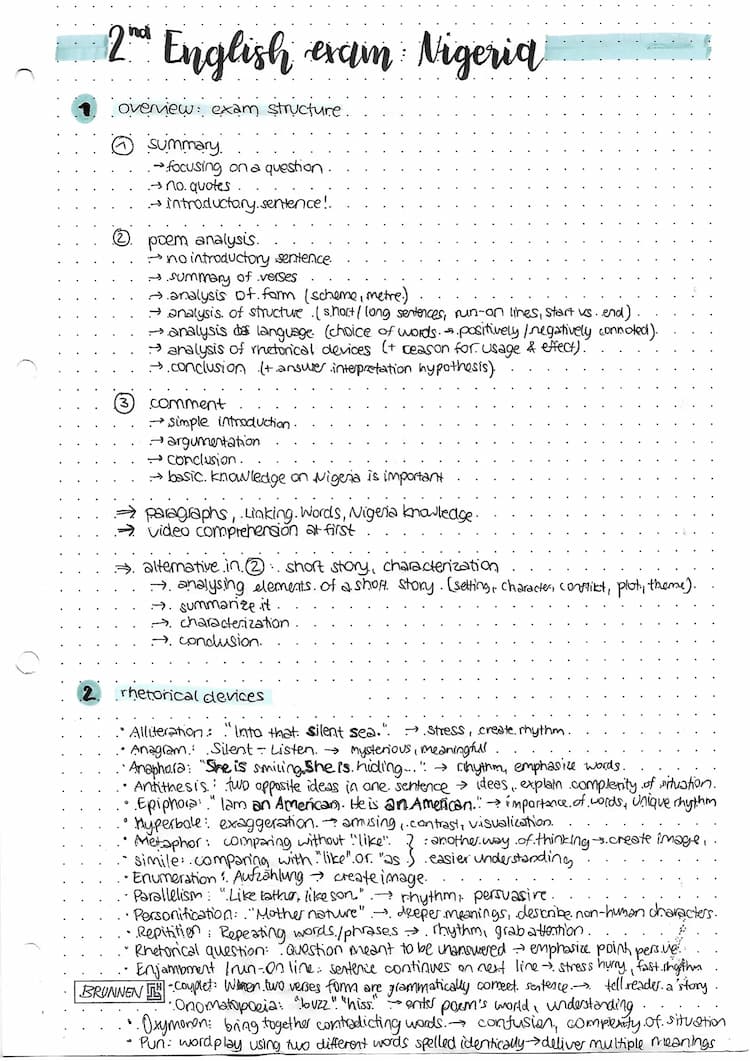 2nd English exam: Nigeria
1 overview: exam structure
① summary
→ focusing on a question
→ no quotes
→ introductory sentence!
② poem analysis
→ no introductory sentence
→ summary of verses
→ analysis of form (scheme, metre)
→ analysis of structure (short/long sentences, run-on lines, start vs. end)
→ analysis of language (choice of words → positively/negatively connoted)
→ analysis of rhetorical devices (+ reason for usage & effect)
→ conclusion (+ answer interpretation hypothesis)
③ comment
→ simple introduction
→ argumentation
→ conclusion
→ basic knowledge on Nigeria is important
⇒ paragraphs, linking words, Nigeria knowledge
⇒ video comprehension at first
⇒ alternative in ②: short story, characterization
→ analysing elements of a short story (setting, character, conflikt, plot, theme)
→ summarize it
→ characterization
→ conclusion
2 rhetorical devices
• Alliteration: "Into that silent sea." → stress, create rhythm
• Anagram: Silent - Listen → mysterious, meaningful
• Anaphora: "She is smiling, She is hiding..." → rhythm, emphasize words
• Antithesis: two opposite ideas in one sentence → ideas, explain complexity of situation
• Epiphora: "I am an American. He is an American." → importance of words, unique rhythm
• hyperbole: exaggeration → amusing, contrast, visualization
• Metaphor: comparing without "like" } : another way of thinking → create image,
• simile: comparing with "like" or "as } easier understanding
• Enumeration: Aufzählung → create image
• Parallelism: "Like father, like son." → rhythm, persuasive
• Personification: "Mother nature" → deeper meanings, describe non-human characters
• Repitition: Repeating words/phrases → rhythm, grab attention
• Rhetorical question: question meant to be unanswered → emphasize point, persuve
• Enjambment / run-on line: sentence continues on next line → stress hurry, fast rhythm
BRUNNEN
• Couplet: When two verses form are grammatically correct sentence → tell reader a story
• Onomatopoeia: "buzz" "hiss" → enter poem's world, understanding
• Oxymoron: bring together contradicting words → confusion, complexity of situation
• Pun: wordplay using two different words spelled identically → deliver multiple meanings